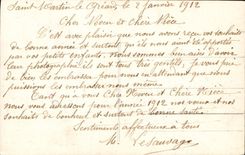 Saint-Martin le Gréard le 2 janvier 1912
Cher Neveu et Chère Nièce
C'est avec plaisir que nous avons reçu vos souhaits
de bonne année et surtout qu'ils nous ont été apportés
par vos petits enfants. Nous sommes bien aises d'avoir
leur photographie ils sont tous très gentils, je vous prie
de bien les embrasser pour nous en attendant que nous
puissions les embrasser nous même.
Tant qu'à vous Cher Neveu et Chère Nièce
nous vous adressons pour l'année 1912 nos vœux et nos
souhaits de bonheur et surtout de bonne santé.
Sentiments affectueux à tous
Lesauvage